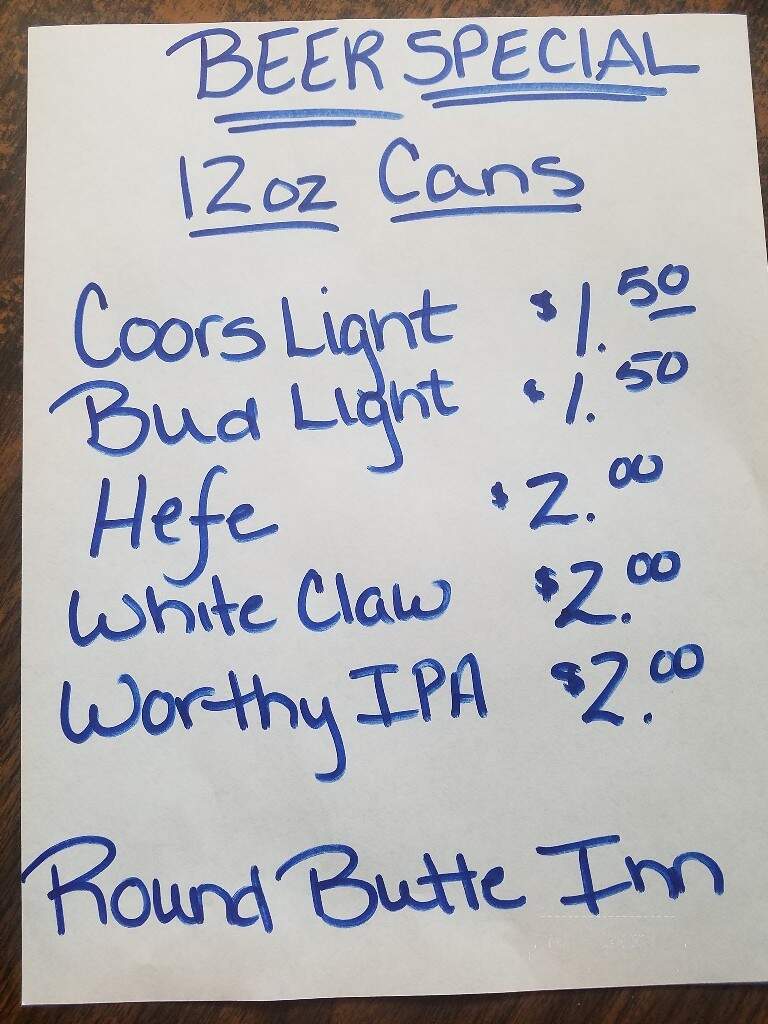 BEER SPECIAL
12oz Cans
Coors Light $1.50
Bud Light $1.50
Hefe $2.00
White Claw $2.00
Worthy IPA $2.00
Round Butte Inn